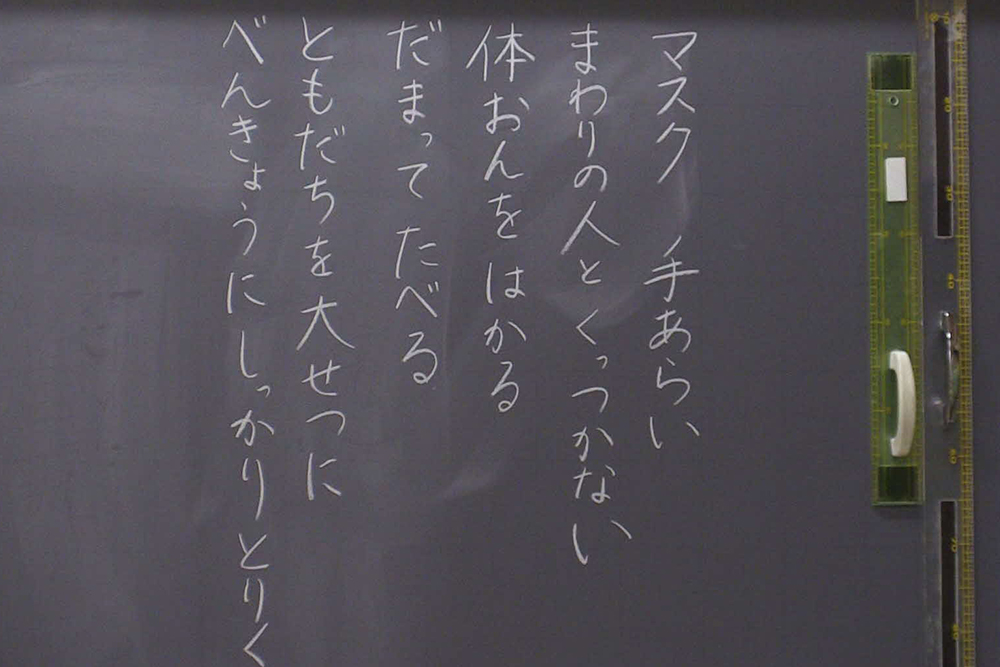 マスク　手あらい
まわりの人とくっつかない
体おんをはかる
だまって たべる
ともだちを大せつに
べんきょうにしっかりとりく